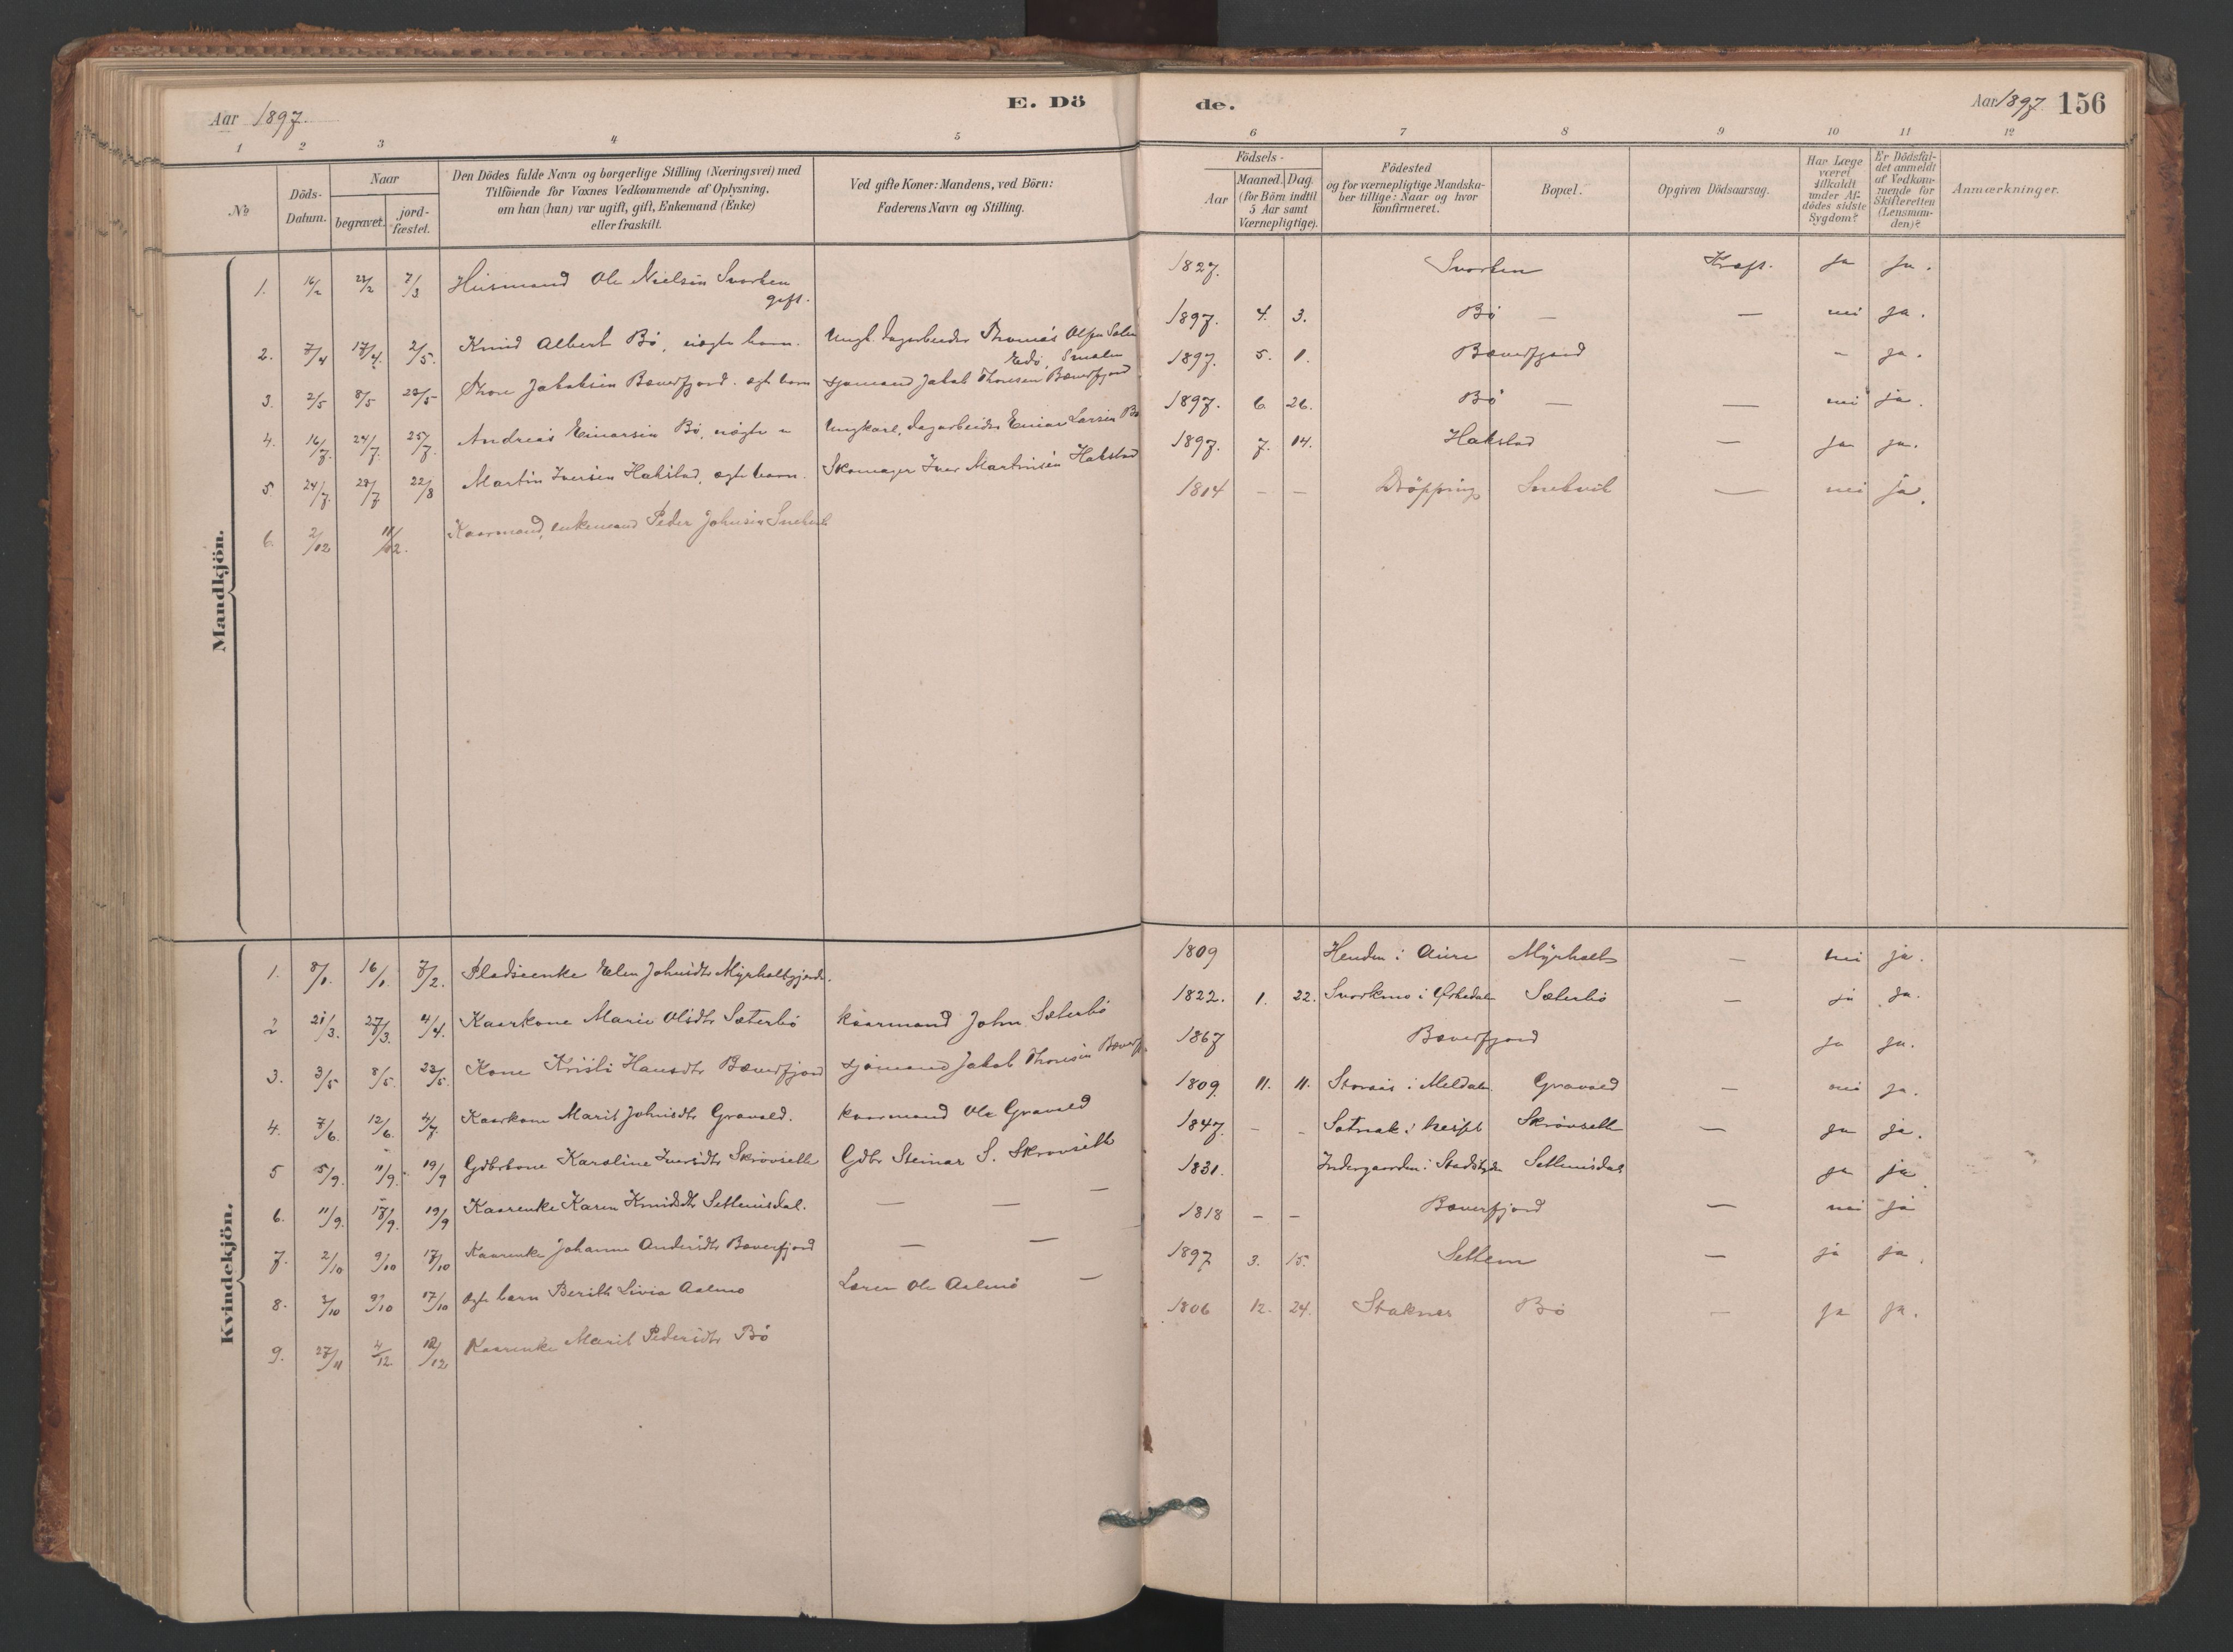 Aar 1897.
E. Dö
de.
Aar 1897. 156
1 2 3 4 5 6 7 8 9 10 11 12
No
Döds-Datum.
Naar
begravet.
jord-fæstet.
Den Dödes fulde Navn og borgerlige Stilling (Næringsvei) med
Tilföiende for Voxnes Vedkommende af Oplysning,
om han (hun) var ugift, gift, Enkemand (Enke)
eller fraskilt.
Ved gifte Koner: Mandens, ved Börn:
Faderens Navn og Stilling.
Födsels-
Aar
Maaned. Dag.
(for Börn indtil
5 Aar samt
Værnepligtige).
Födested
og for værnepligtige Mandska-
ber tillige: Naar og hvor
konfirmeret.
Bopæl.
Opgiven Dödsaarsag.
Har Læge
været
tilkaldt
under Af-
dödes sidste
Sygdom?
Er Dödsfal-
det anmeldt
af Vedkom-
mende for
Skifteretten
(Lensman-
den)?
Anmærkninger.
Mandkjön.
1. 16/2 22/2 7/3 Husmand Ole Nielsen Svorken 1827. Svorken Kræft. ja ja.
gift.
2. 7/4 17/4. 2/5. Knud Albert Bö, uægte barn. Ungk. Dagarbeider Thomas Olsen 1897. 4. 3. Bö — — nei ja.
Edö, Smølen
3. 2/5 8/5 23/5 Thore Jakobsen Bæverfjord. ægte barn Sjømand Jakob Thoresen Bæverfjord 1897. 5. 1. Bæverfjord — ja.
4. 16/7. 24/7. 25/7. Andreas Einarsen Bö, uægte " Ungkarl, dagarbeider Einar Larsen Bö 1897. 6. 26. Bö — — nei ja.
5. 24/7. 29/7 22/8 Martin Iversen Hakstad, ægte barn. Skomager Iver Martinsen Hakstad 1897. 7. 14. Hakstad — ja ja.
6. 2/12 11/12. Kaarmand, enkemand Peder Johnsen Snekvik 1814 — — Dröpping Snekvik — nei ja.
Kvindekjön.
1. 8/1. 16/1. 7/2. Pladsenke Elen Johnsdtr Myrholtgjerdet. 1809 Henden i Aure Myrholt — nei ja.
2 21/3. 27/3. 4/4. Kaarkone Marie Olsdtr Sæterbö kaarmand John Sæterbö 1822. 1. 22. Svorkmo i Orkedalen Sæterbö — ja ja.
3. 3/5 8/5. 23/5. Kone Kristi Hansdtr Bæverfjord sjömand Jakob Thoresen Bæverfj. 1867 Bæverfjord ja ja.
4. 7/6. 12/6. 4/7. Kaarkone Marit Johnsdtr Gravald. kaarmand Ole Gravald 1809. 11. 11. Storaas i Meldalen. Gravald — nei ja.
5 5/9. 11/9. 19/9 Gdbrkone Karoline Iversdtr Skrövseth Gdbr Steinar S. Skrövseth 1847. - - Sotnak i herspt Skrövseth — ja ja.
6. 11/9. 18/9. 19/9 Kaarenke Karen Knudsdtr Settemsdal. — — — 1831. Indergaarden i Stadsbygden Settemsdal ja ja
7. 2/10 9/10 17/10 Kaarenke Johanne Andersdtr Bæverfjord — — 1818 - - Bæverfjord — nei ja
8. 3/10 9/10 17/10 ægte barn Berith Livia Aalmo Lærer Ole Aalmo — 1897 3. 15. Settem — ja ja.
9. 27/11 4/12 12/12 Kaarenke Marit Pedersdtr Bö 1806 12. 24. Staknes Bö — ja ja.